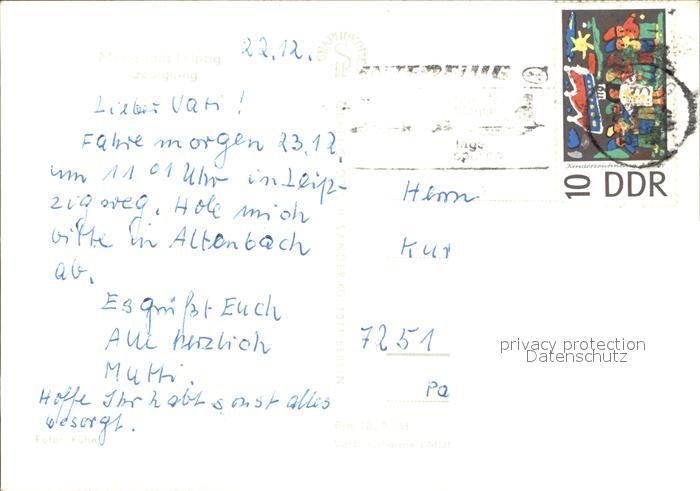 22.12.
Lieber Vati!
Fahre morgen 23.12.
um 11 01 Uhr in Leip-
zig weg. Hole mich
bitte in Altenbach
ab.
Es grüßt Euch
Alle herzlich
Mutti.
Hoffe Ihr habt sonst alles
besorgt.
Foto: Kühn
Herrn
Kur
7251
Pa
10 DDR
privacy protection
Datenschutz